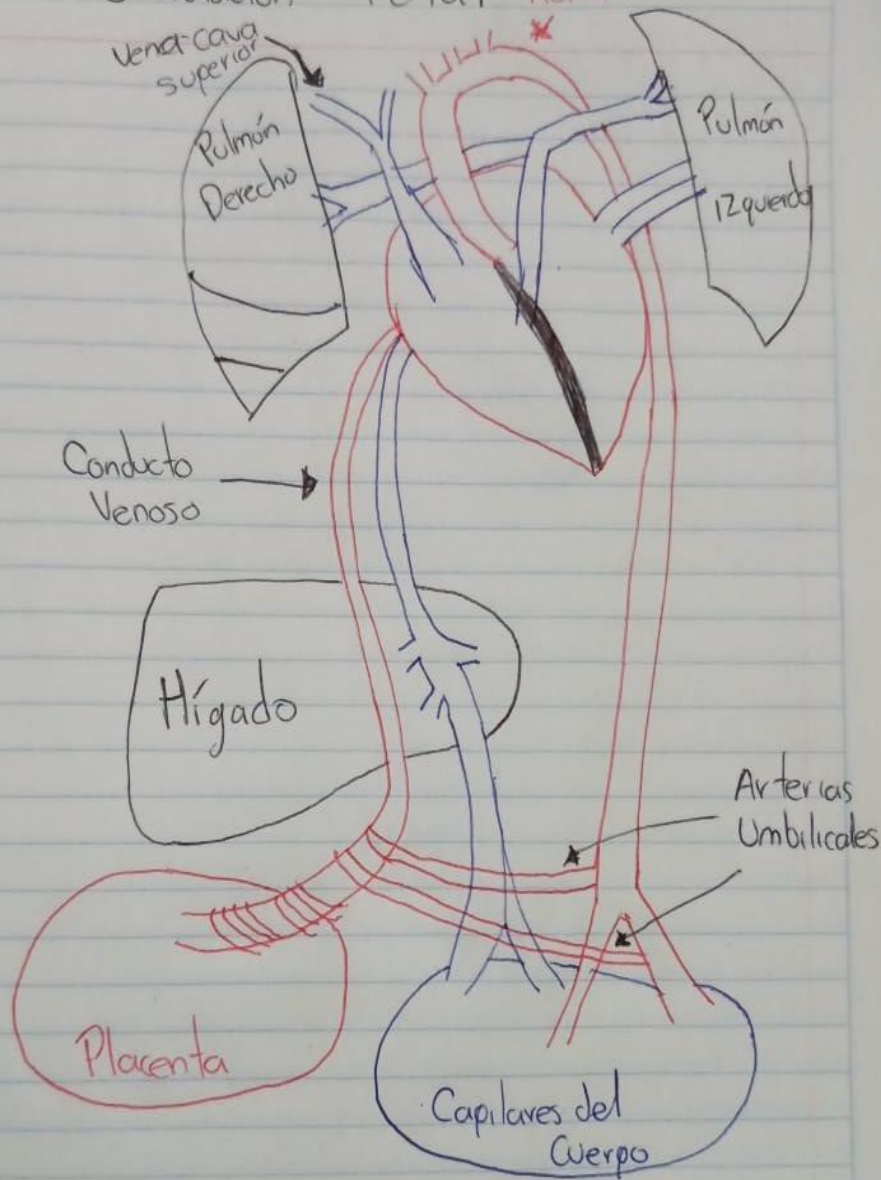 Vena cava
superior
Pulmón
Derecho
Pulmón
Izquierdo
Conducto
Venoso
Hígado
Arterias
Umbilicales
Placenta
Capilares del
Cuerpo